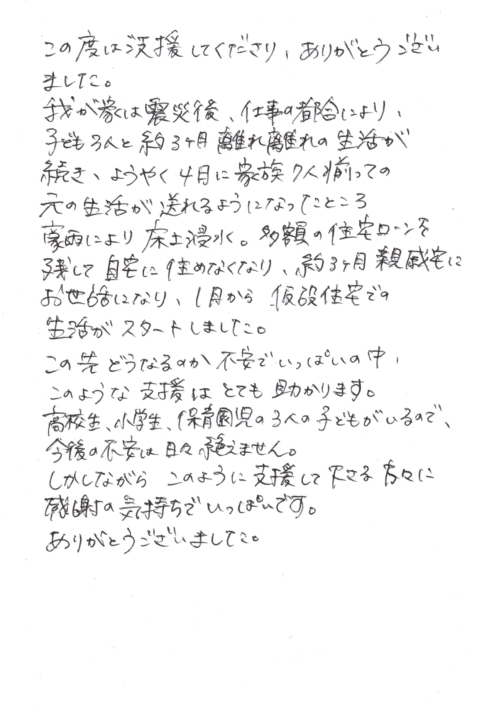 この度は支援してくださり、ありがとうござい
ましたこ。
我が家は震災後、仕事の都合により、
子ども3人と約3ヶ月離れ離れの生活が
続き、ようやく4月に家族7人揃っての
元の生活が送れるようになったところ
豪雨により床上浸水。多額の住宅ローンを
残して自宅に住めなくなり、約3ヶ月親戚宅に
お世話になり、1月から仮設住宅での
生活がスタートしました。
この先どうなるのか不安でいっぱいの中、
このような支援はとても助かります。
高校生、小学生、保育園児の3人の子どもがいるので、
今後の不安は日々絶えません。
しかしながらこのように支援して下さる方々に
感謝の気持ちでいっぱいです。
ありがとうございました。